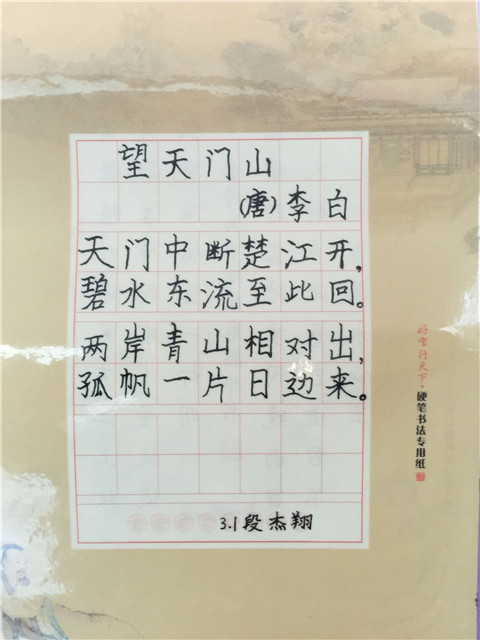 望天门山
(唐)李白
天门中断楚江开，
碧水东流至此回。
两岸青山相对出，
孤帆一片日边来。
3.1段杰翔
好字行天下·硬笔书法专用纸